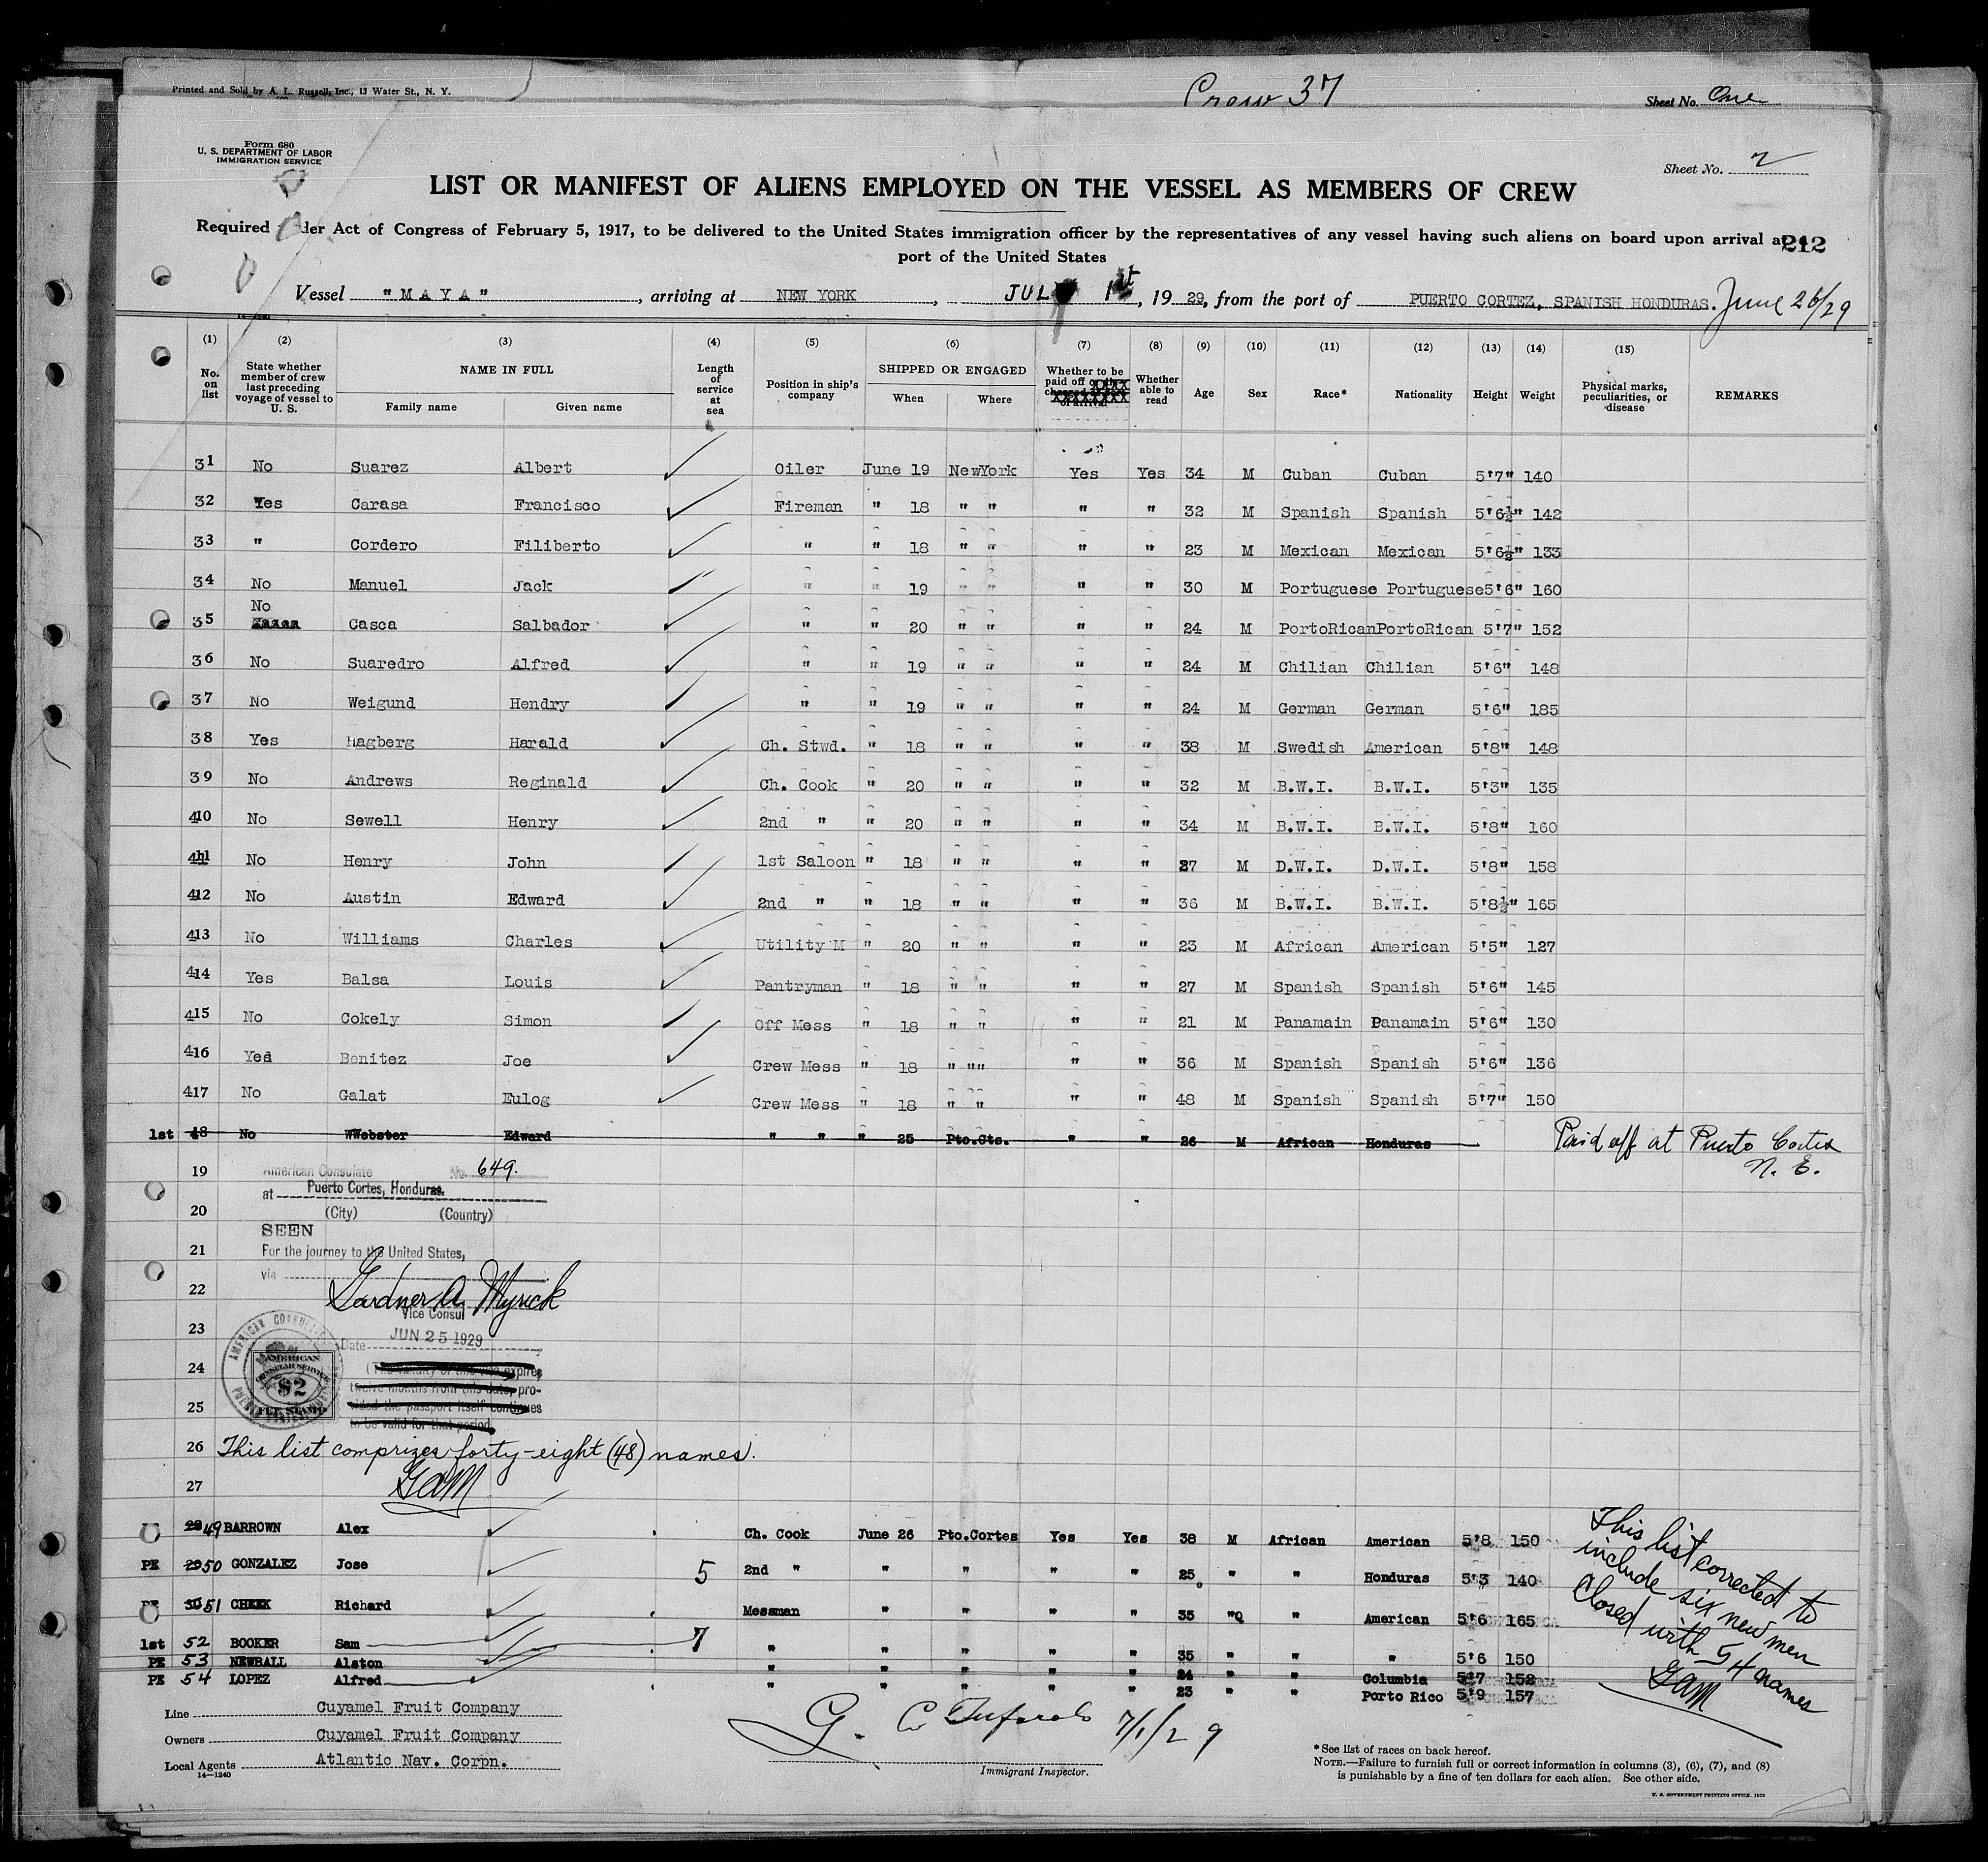 Printed and Sold by A. L. Russell, Inc., 13 Water St., N. Y.
Crew 37
Sheet No. One
Form 680
U. S. DEPARTMENT OF LABOR
IMMIGRATION SERVICE
Sheet No. 2
LIST OR MANIFEST OF ALIENS EMPLOYED ON THE VESSEL AS MEMBERS OF CREW
Required der Act of Congress of February 5, 1917, to be delivered to the United States immigration officer by the representatives of any vessel having such aliens on board upon arrival at
212
port of the United States
Vessel "MAYA", arriving at NEW YORK, JULY 1st, 1929, from the port of PUERTO CORTEZ, SPANISH HONDURAS. June 26/29
(1) (2) (3) (4) (5) (6) (7) (8) (9) (10) (11) (12) (13) (14) (15)
No. on list
State whether member of crew last preceding voyage of vessel to U. S.
NAME IN FULL
Family name Given name
Length of service at sea
Position in ship's company
SHIPPED OR ENGAGED
When Where
Whether to be paid off
Whether able to read
Age Sex Race* Nationality Height Weight
Physical marks, peculiarities, or disease
REMARKS
31 No Suarez Albert Oiler June 19 NewYork Yes Yes 34 M Cuban Cuban 5'7" 140
32 Yes Carasa Francisco Fireman " 18 " " " " 32 M Spanish Spanish 5'6½" 142
33 " Cordero Filiberto " " 18 " " " " 23 M Mexican Mexican 5'6½" 133
34 No Manuel Jack " " 19 " " " " 30 M Portuguese Portuguese 5'6" 160
35 No Casca Salbador " " 20 " " " " 24 M PortoRican PortoRican 5'7" 152
36 No Suaredro Alfred " " 19 " " " " 24 M Chilian Chilian 5'6" 148
37 No Weigund Hendry " " 19 " " " " 24 M German German 5'6" 185
38 Yes Hagberg Harald Ch. Stwd. " 18 " " " " 38 M Swedish American 5'8" 148
39 No Andrews Reginald Ch. Cook " 20 " " " " 32 M B.W.I. B.W.I. 5'3" 135
410 No Sewell Henry 2nd " " 20 " " " " 34 M B.W.I. B.W.I. 5'8" 160
411 No Henry John 1st Saloon " 18 " " " " 27 M D.W.I. D.W.I. 5'8" 158
412 No Austin Edward 2nd " " 18 " " " " 36 M B.W.I. B.W.I. 5'8½" 165
413 No Williams Charles Utility M " 20 " " " " 23 M African American 5'5" 127
414 Yes Balsa Louis Pantryman " 18 " " " " 27 M Spanish Spanish 5'6" 145
415 No Cokely Simon Off Mess " 18 " " " " 21 M Panamain Panamain 5'6" 130
416 Yes Benitez Joe Crew Mess " 18 " """ " " 36 M Spanish Spanish 5'6" 136
417 No Galat Eulog Crew Mess " 18 " " " " 48 M Spanish Spanish 5'7" 150
1st 48 No WWebster Edward " " " 25 Pto.Cts. " " 26 M African Honduras Paid off at Puerto Cortes
N. E.
19 American Consulate No. 649.
at Puerto Cortes, Honduras.
20 (City) (Country)
SEEN
21 For the journey to the United States,
via
22 Gardner A. Myrick
Vice Consul
23
Date JUN 25 1929
24 (The validity of this visa expires
twelve months from this date, pro-
25 vided the passport itself continues
to be valid for that period
AMERICAN CONSULAR SERVICE
$2
FEE STAMP
26 This list comprizes forty-eight (48) names.
27 GAM
28 49 BARROWN Alex Ch. Cook June 26 Pto.Cortes Yes Yes 38 M African American 5'8 150
PE 29 50 GONZALEZ Jose 5 2nd " " " " " 25 " " Honduras 5'3 140
30 51 CHEEK Richard Messman " " " " 35 " " American 5'6 165
1st 52 BOOKER Sam 7 " " " " " 35 " " " 5'6 150
PE 53 NEWBALL Alston " " " " " 24 " " Columbia 5'7 152
PE 54 LOPEZ Alfred " " " " " 23 " " Porto Rico 5'9 157
This list corrected to
include six new men
Closed with 54 names
GAM
Line Cuyamel Fruit Company
Owners Cuyamel Fruit Company
Local Agents Atlantic Nav. Corpn.
14—1240
7/1/29
Immigrant Inspector.
*See list of races on back hereof.
NOTE.—Failure to furnish full or correct information in columns (3), (6), (7), and (8)
is punishable by a fine of ten dollars for each alien. See other side.
U. S. GOVERNMENT PRINTING OFFICE: 1929